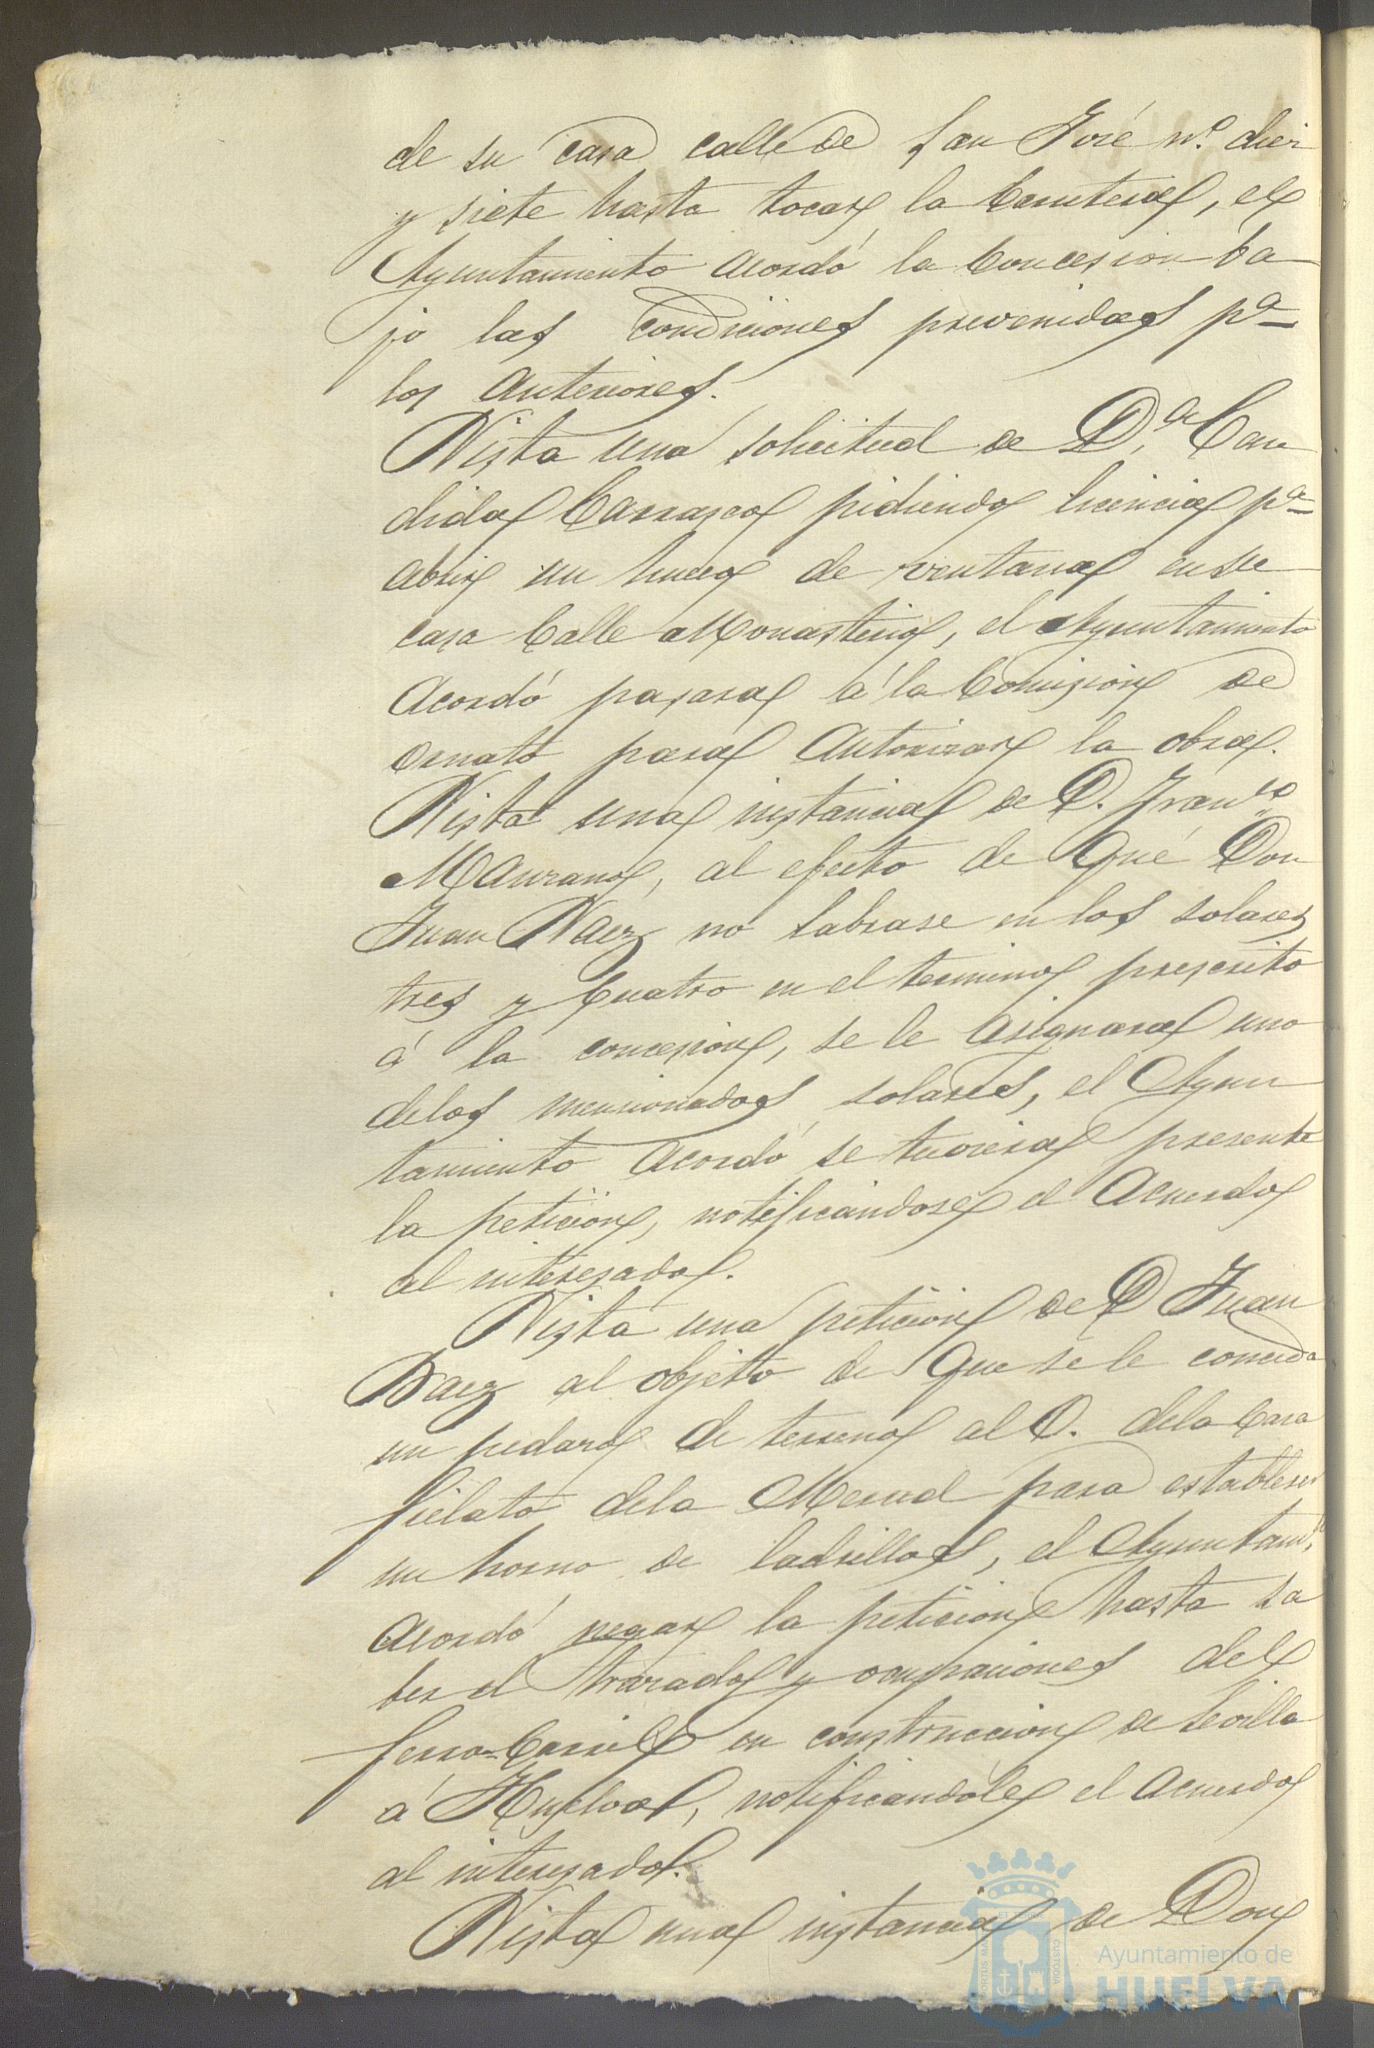 de su casa calle de San José nº. diez
y siete hasta tocar la Carretera, el
Ayuntamiento acordó la Concesion ba
jo las condiciones prevenidas pª
los anteriores.
Vista una solicitud de D.ª Can
dida Carrasco pidiendo licencia pª
abrir un hueco de ventana en su
casa Calle Monasterio, el Ayuntamiento
Acordó pasara á la Comision de
ornato para autorizar la obra.
Vista una instancia de D. Franco
Manzano, al efecto de que Don
Juan Vaez no labrase en los solares
tres y Cuatro en el termino prescrito
á la concesion, se le asignara uno
delos mencionados solares, el Ayun
tamiento acordó se tuviera presente
la peticion, notificandose el Acuerdo
al interesado.
Vista una peticion de D Juan
Vaez al objeto de que se le conceda
un pedazo de terreno al O. dela Casa
fielato dela Merced para establecer
un horno de ladrillos, el Ayuntamto
Acordó negar la peticion hasta sa
ber el trazado y ocupaciones del
ferro-Carril en construccion de Sevilla
á Huelva, notificandole el acuerdo
al interesado.
Vista una instancia de Don
Ayuntamiento de
HUELVA